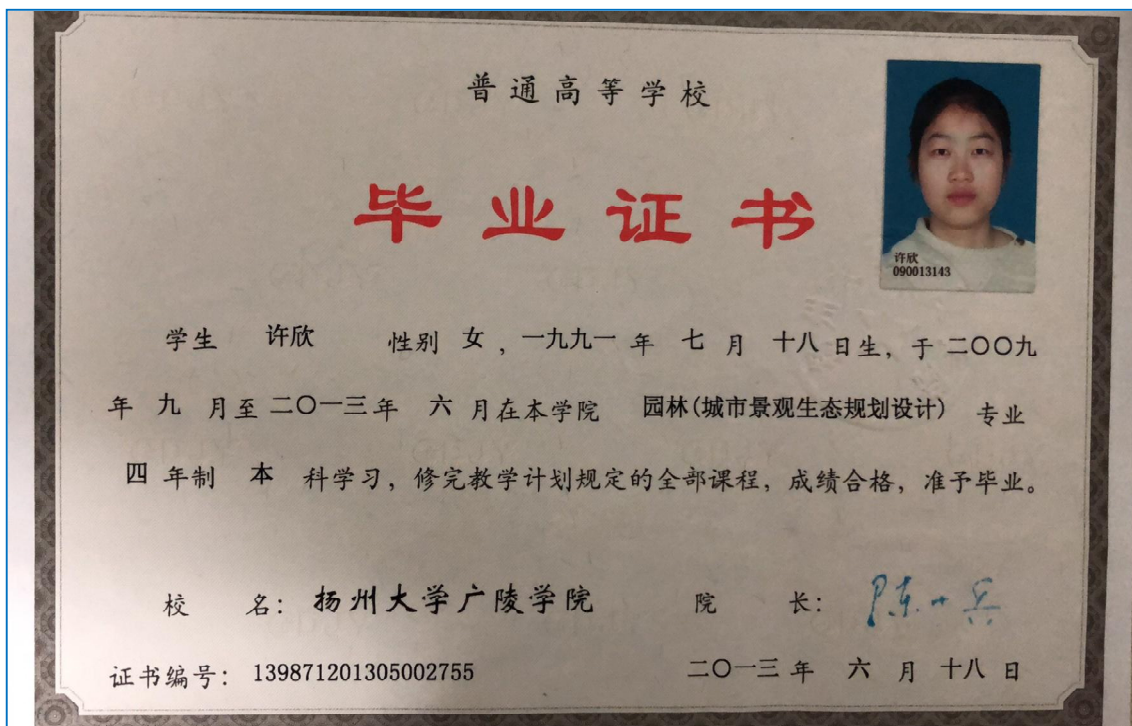 普通高等学校
毕业证书
许欣
090013143
学生 许欣 性别 女，一九九一 年 七 月 十八 日生，于 二〇〇九
年 九 月至 二〇一三 年 六 月在本学院 园林(城市景观生态规划设计) 专业
四 年制 本 科学习，修完教学计划规定的全部课程，成绩合格，准予毕业。
校 名：扬州大学广陵学院 院 长：
证书编号：139871201305002755 二〇一三 年 六 月 十八 日